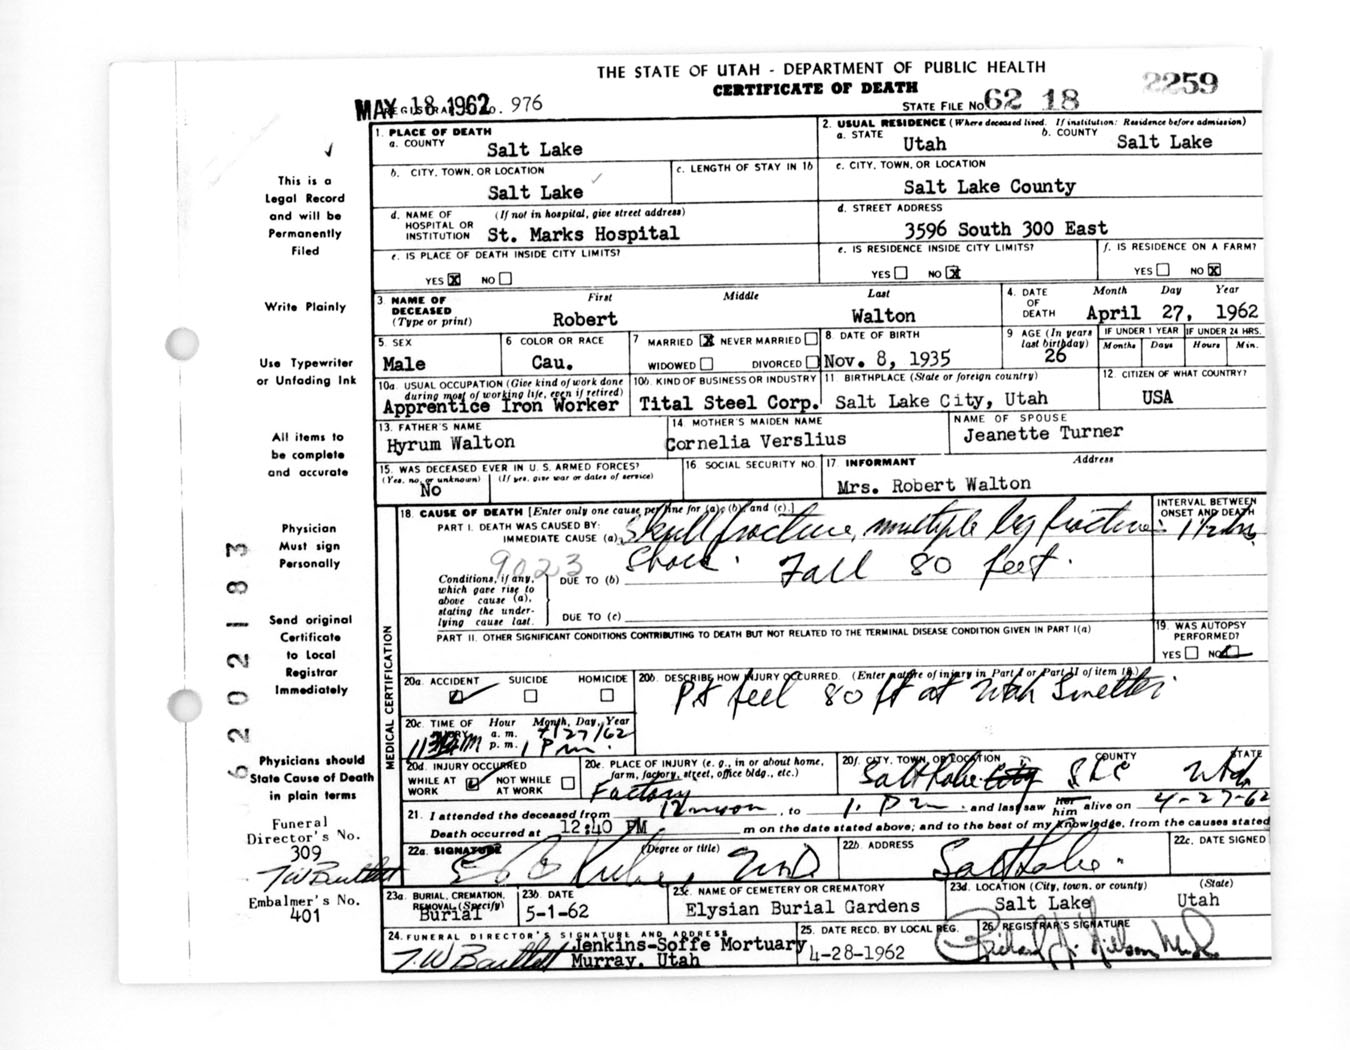 THE STATE OF UTAH - DEPARTMENT OF PUBLIC HEALTH
CERTIFICATE OF DEATH
2259
MAY 18 1962
REGISTRAR'S NO. 976
STATE FILE No. 62 18
1. PLACE OF DEATH
a. COUNTY Salt Lake
2. USUAL RESIDENCE (Where deceased lived. If institution: Residence before admission)
a. STATE Utah b. COUNTY Salt Lake
b. CITY, TOWN, OR LOCATION Salt Lake
c. LENGTH OF STAY IN 1b
c. CITY, TOWN, OR LOCATION Salt Lake County
d. NAME OF HOSPITAL OR INSTITUTION (If not in hospital, give street address) St. Marks Hospital
d. STREET ADDRESS 3596 South 300 East
e. IS PLACE OF DEATH INSIDE CITY LIMITS?
YES X NO
e. IS RESIDENCE INSIDE CITY LIMITS?
YES NO X
f. IS RESIDENCE ON A FARM?
YES NO X
3. NAME OF DECEASED (Type or print) First Middle Last
Robert Walton
4. DATE OF DEATH Month Day Year
April 27, 1962
5. SEX Male
6 COLOR OR RACE Cau.
7 MARRIED X NEVER MARRIED
WIDOWED DIVORCED
8. DATE OF BIRTH Nov. 8, 1935
9 AGE (In years last birthday) 26
IF UNDER 1 YEAR Months Days
IF UNDER 24 HRS. Hours Min.
10a. USUAL OCCUPATION (Give kind of work done during most of working life, even if retired)
Apprentice Iron Worker
10b. KIND OF BUSINESS OR INDUSTRY
Tital Steel Corp.
11. BIRTHPLACE (State or foreign country)
Salt Lake City, Utah
12. CITIZEN OF WHAT COUNTRY?
USA
13. FATHER'S NAME
Hyrum Walton
14 MOTHER'S MAIDEN NAME
Cornelia Verslius
NAME OF SPOUSE
Jeanette Turner
15. WAS DECEASED EVER IN U. S. ARMED FORCES?
(Yes, no, or unknown) (If yes, give war or dates of service)
No
16 SOCIAL SECURITY NO.
17. INFORMANT Address
Mrs. Robert Walton
18. CAUSE OF DEATH [Enter only one cause per line for (a), (b), and (c).]
INTERVAL BETWEEN ONSET AND DEATH
PART I. DEATH WAS CAUSED BY:
IMMEDIATE CAUSE (a) Skull fracture, multiple leg fracture 1 1/2 hr.
Shock. Fall 80 feet.
9023
Conditions, if any, which gave rise to above cause (a), stating the underlying cause last.
DUE TO (b)
DUE TO (c)
PART II. OTHER SIGNIFICANT CONDITIONS CONTRIBUTING TO DEATH BUT NOT RELATED TO THE TERMINAL DISEASE CONDITION GIVEN IN PART I(a)
19. WAS AUTOPSY PERFORMED?
YES NO
MEDICAL CERTIFICATION
20a. ACCIDENT SUICIDE HOMICIDE
20b. DESCRIBE HOW INJURY OCCURRED. (Enter nature of injury in Part I or Part II of item 18.)
Pt feel 80 ft at Utah Smelter
20c. TIME OF INJURY Hour a. m. p. m. Month, Day, Year
4/27/62
1 P m.
20d. INJURY OCCURRED
WHILE AT WORK NOT WHILE AT WORK
20e. PLACE OF INJURY (e. g., in or about home, farm, factory, street, office bldg., etc.)
Factory
20f. CITY, TOWN, OR LOCATION COUNTY STATE
Salt Lake City SLC Utah
21. I attended the deceased from 12 noon, to 1. P m. and last saw her him alive on 4-27-62
Death occurred at 12:40 PM m on the date stated above; and to the best of my knowledge, from the causes stated
22a. SIGNATURE (Degree or title)
22b. ADDRESS Salt Lake.
22c. DATE SIGNED
23a. BURIAL, CREMATION, REMOVAL (Specify)
Burial
23b. DATE
5-1-62
23c. NAME OF CEMETERY OR CREMATORY
Elysian Burial Gardens
23d. LOCATION (City, town, or county) (State)
Salt Lake Utah
24. FUNERAL DIRECTOR'S SIGNATURE AND ADDRESS
T.W. Bartlett Jenkins-Soffe Mortuary
Murray, Utah
25. DATE RECD. BY LOCAL REG.
4-28-1962
26. REGISTRAR'S SIGNATURE
This is a
Legal Record
and will be
Permanently
Filed
Write Plainly
Use Typewriter
or Unfading Ink
All items to
be complete
and accurate
Physician
Must sign
Personally
Send original
Certificate
to Local
Registrar
Immediately
Physicians should
State Cause of Death
in plain terms
Funeral
Director's No.
309
TW Bartlett
Embalmer's No.
401
62 02 183